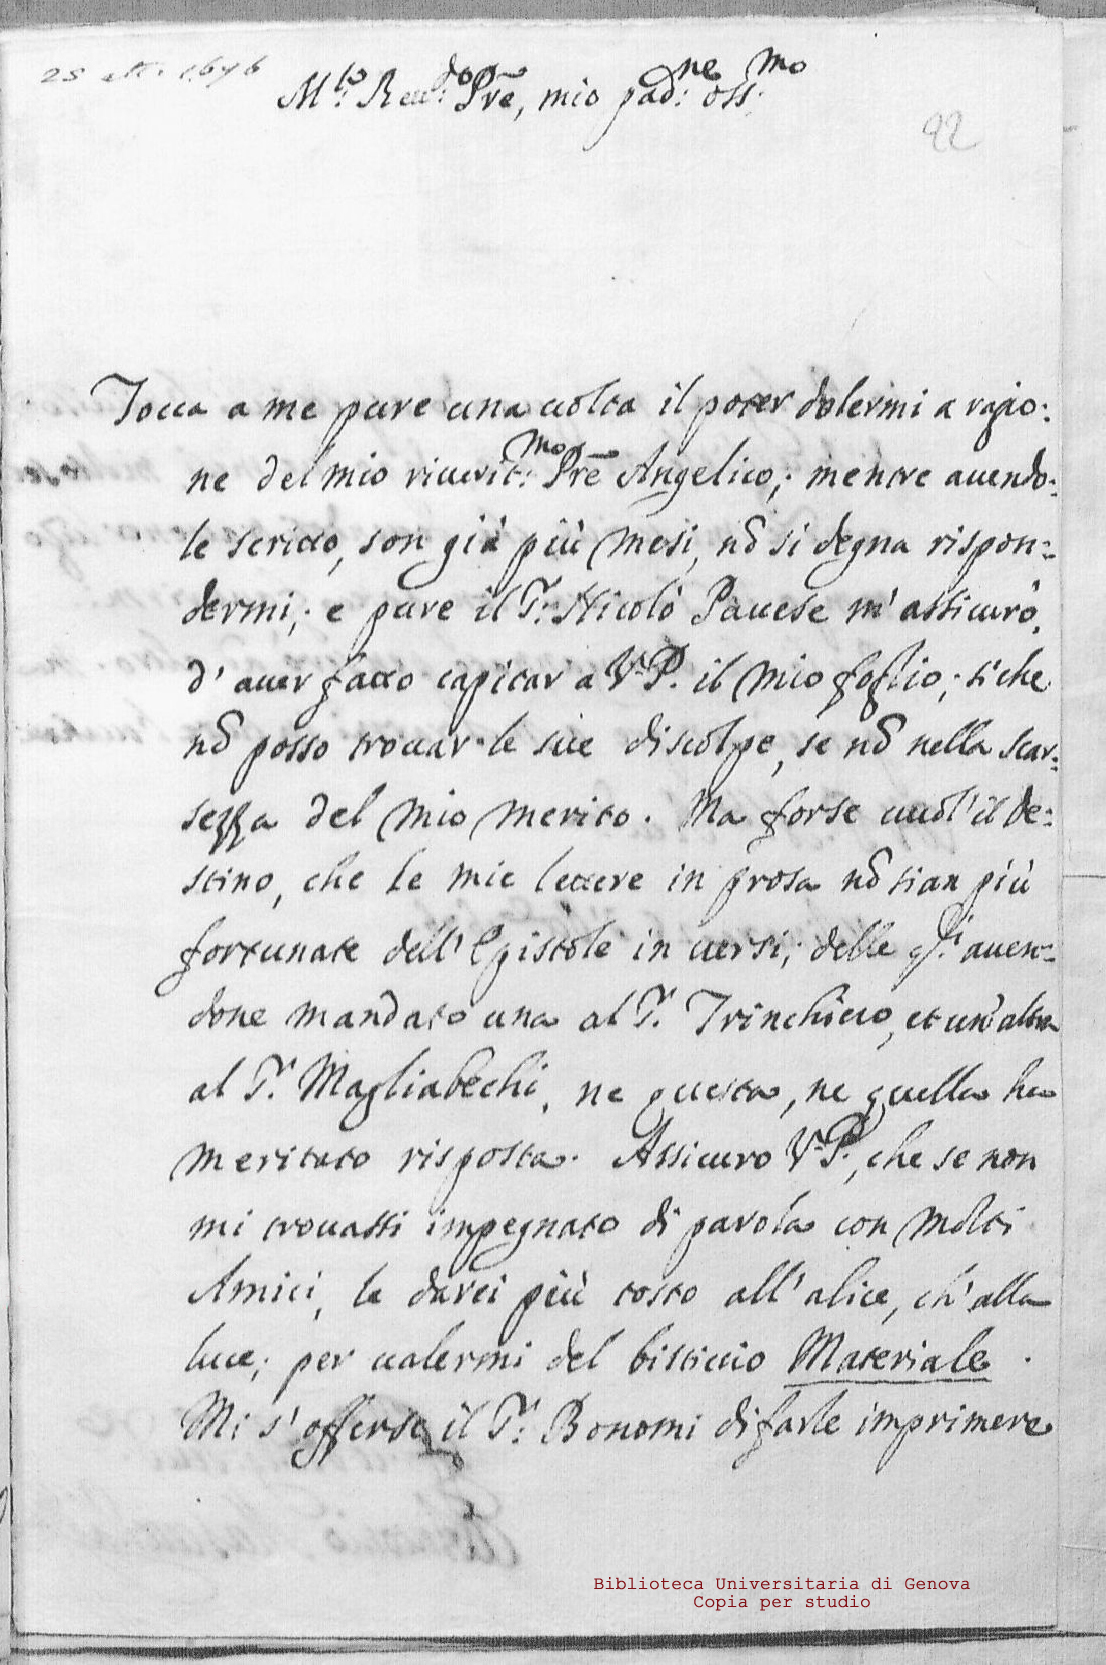 25 ott. 1676
M.to Reu.do Pre, mio pad.ne oss.mo
92
Tocca a me pure una uolta il poter dolermi a ragio:
ne del mio riuerit.mo Pre Angelico; mentre auendo:
le scritto, son già più mesi, nõ si degna rispon:
dermi; e pure il Sr. Nicolò Pauese m'assicurò,
d'auer fatto capitar a V.P. il mio foglio; si che
nõ posso trouar le sue discolpe, se nõ nella scar:
sezza del mio merito. Ma forse uuol'il de:
stino, che le mie lettere in prosa nõ sian più
fortunate dell'Epistole in uersi; delle q.li auen:
done mandato una al Sr. Trinchieo, et un'altra
al Sr. Magliabechi, ne questa, ne quella ha
meritato risposta. Assicuro V.P., che se non
mi trouassi impegnato di parola con molti
Amici, le darei più tosto all'alice, ch'alla
luce; per ualermi del bisticcio Materiale.
Mi s'offerse il Sr. Bonomi di farle imprimere
Biblioteca Universitaria di Genova
Copia per studio